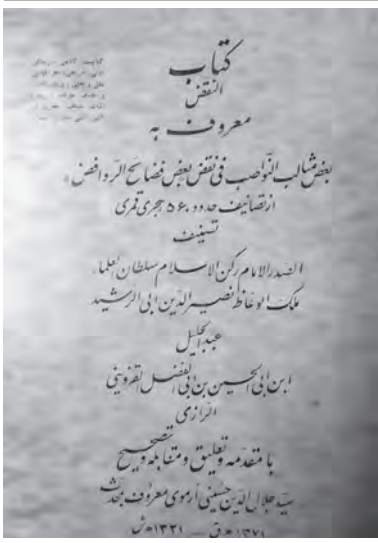 کتاب
النقض
معروف به
بعض مثالب النّواصب فی نقض بعض فضائح الرّوافض
از تصانیف حدود ۵۶۰ هجری قمری
تصنیف
الصّدر الامام رکن الاسلام سلطان العلماء
ملک الوعّاظ نصیر الدّین ابی الرّشید
عبد الجلیل
ابن ابی الحسین بن ابی الفضل القزوینی
الرّازی
با مقدّمه و تعلیق و مقابله و تصحیح
سیّد جلال الدّین حسینی ارموی معروف بمحدّث
۱۳۷۱ ه‍ ق — ۱۳۳۱ ه‍ ش